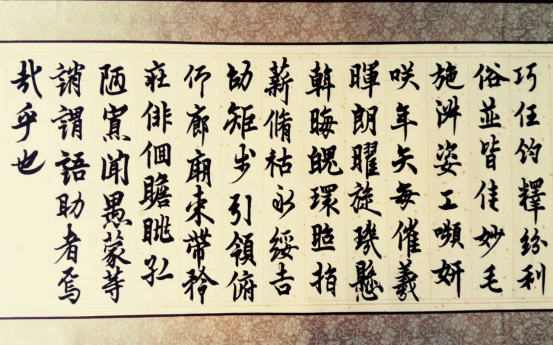 巧任钓釋紛利
俗並皆佳妙毛
施淑姿工嚬妍
咲年矢每催羲
暉朗曜旋璣懸
斡晦魄環照指
薪脩祜永綏吉
劭矩步引領俯
仰廊廟束帶矜
莊俳佪瞻眺孤
陋寡聞愚蒙等
誚謂語助者焉
哉乎也